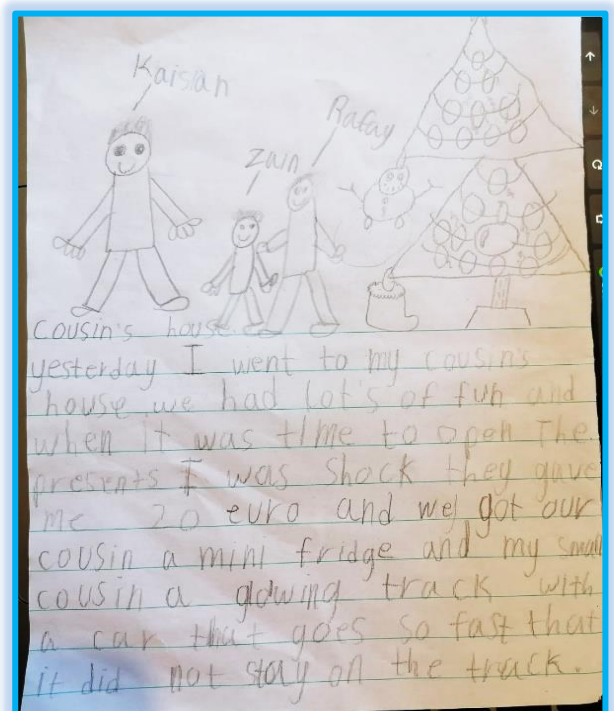 Kaisan
Zain
Rafay
cousin's house
yesterday I went to my cousin's
house we had lot's of fun and
when it was time to open The
presents I was shock they gave
me 20 euro and we got our
cousin a mini fridge and my small
cousin a glowing track with
a car that goes so fast that
it did not stay on the track.